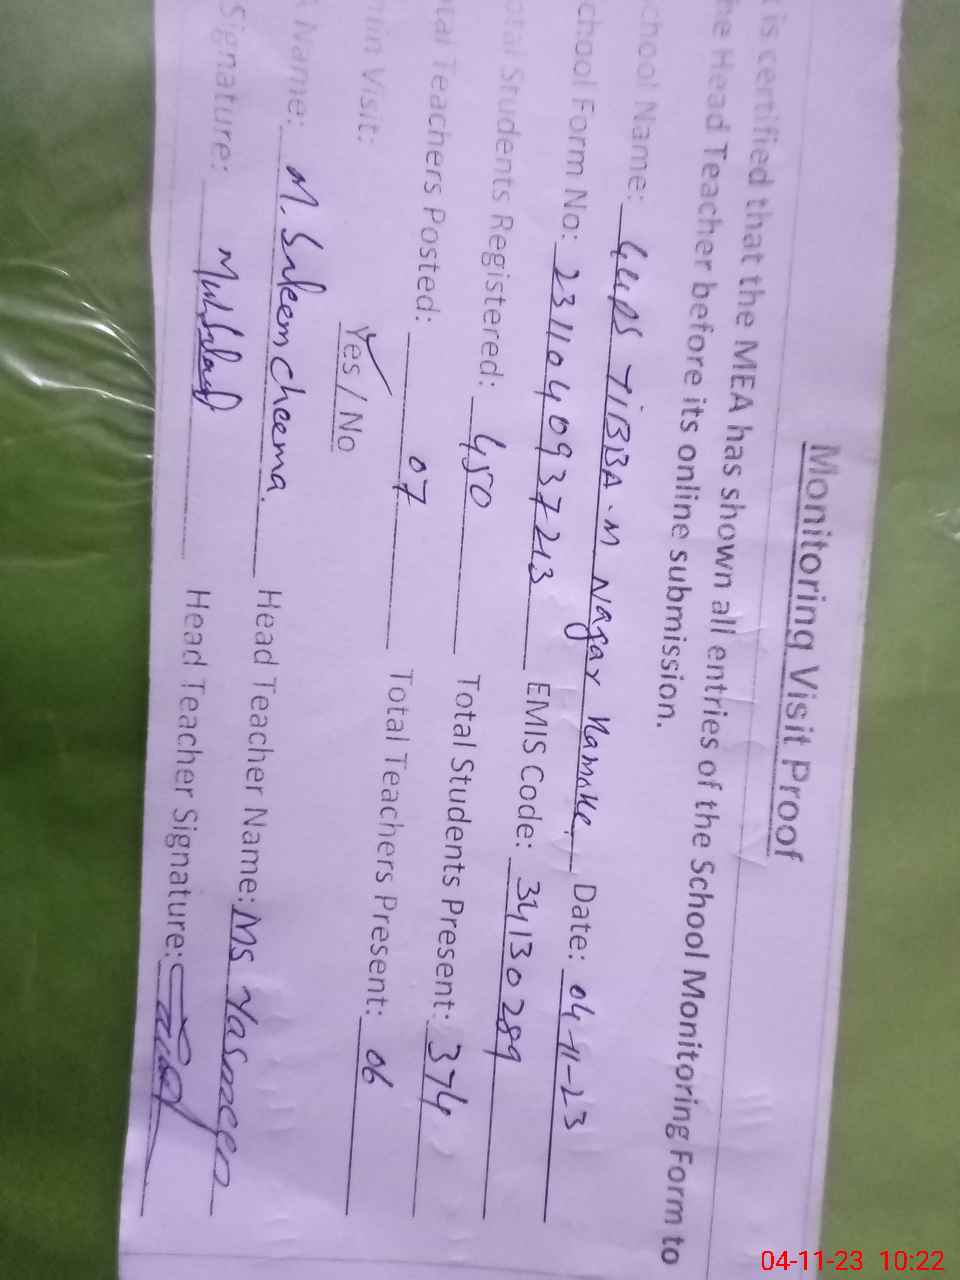 Monitoring Visit Proof
t is certified that the MEA has shown all entries of the School Monitoring Form to
he Head Teacher before its online submission.
chool Name: GGPS TiBBA.M Nagar Namoke. Date: 04-11-23
chool Form No: 23110409372 13 EMIS Code: 34130289
otal Students Registered: 450 Total Students Present: 374
tal Teachers Posted: 07 Total Teachers Present: 06
min Visit: Yes / No
A Name: M. Saleem cheema. Head Teacher Name: Ms Yasmeen
Signature: Head Teacher Signature:
04-11-23 10:22